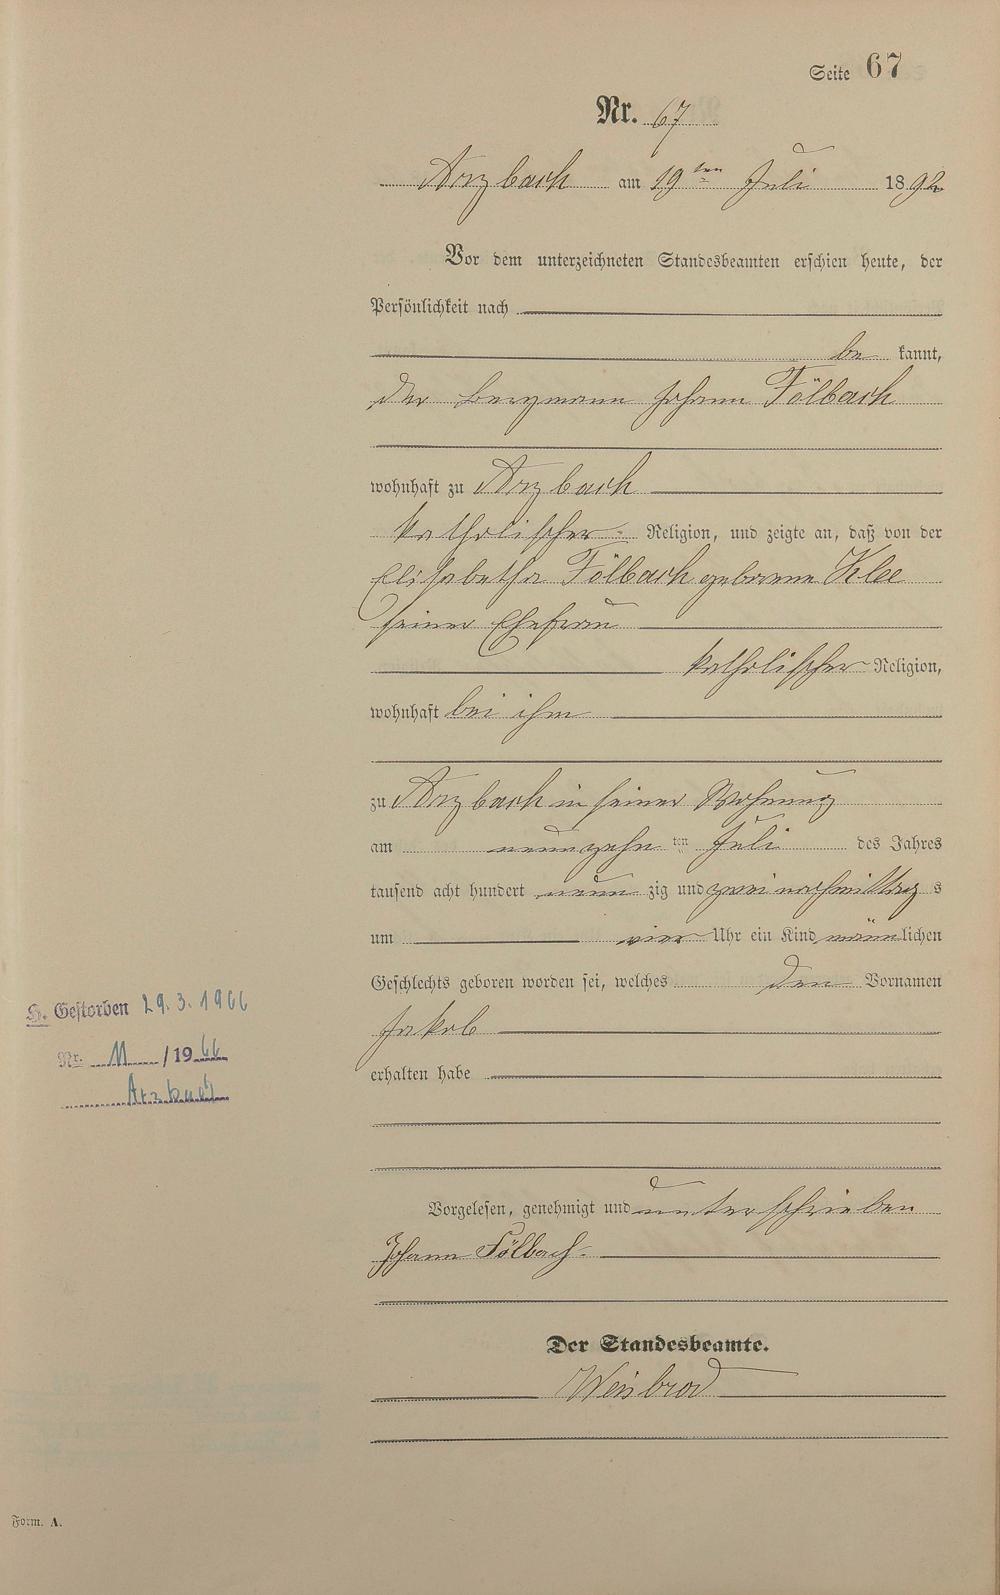 Seite 67
Nr. 67
Arzbach am 19ten Juli 1892
Vor dem unterzeichneten Standesbeamten erschien heute, der
Persönlichkeit nach
be kannt,
der Bergmann Johann Fölbach
wohnhaft zu Arzbach
katholischer Religion, und zeigte an, daß von der
Elisabetha Fölbach geborene Klee
seiner Ehefrau
katholischer Religion,
wohnhaft bei ihm
zu Arzbach in seiner Wohnung
am neunzehn ten Juli des Jahres
tausend acht hundert neun zig und zwei nachmittag s
um vier Uhr ein Kind männlichen
Geschlechts geboren worden sei, welches den Vornamen
Jakob
erhalten habe
Vorgelesen, genehmigt und unterschrieben
Johann Fölbach
Der Standesbeamte.
Weisbrod
H. Gestorben 29.3.1966
Nr. 11 / 1966
Arzbach
Form. A.